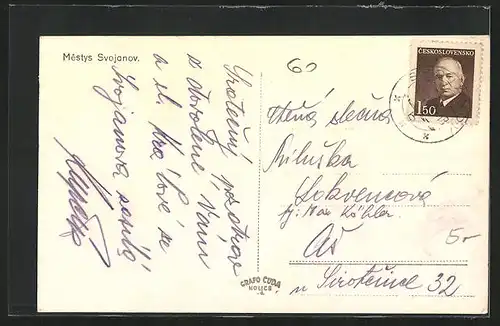 Městys Svojanov.
Srdečný pozdrav
z dovolené Vám
a sl. Králové se
Svojanova zasílá
60
ČESKOSLOVENSKO
1.50
Ctěná slečna
Miluška
Lokvencová
fy: Max Köhler
Aš
Sirotčinec 32
5-
GRAFO ČUDA
HOLICE